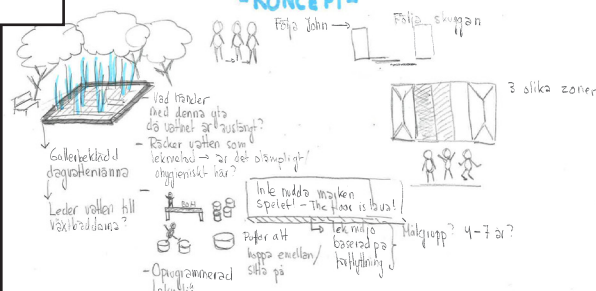 -KONCEPT-
Följa John →
Följa skuggan
3 olika zoner
- Vad händer
med denna yta
då vattnet är avslängt?
- Räcker vatten som
lekredskap → är det olämpligt/
ohygieniskt här?
Gallerbeklädd
dagvattenränna
Leder vatten till
växtbäddarna?
BAM
Inte nudda marken
spelet! - The floor is lava!
Puffar att
hoppa emellan/
sitta på
Lekmiljö
baserad på
förflyttning
Målgrupp? 4-7 år?
- Oprogrammerad